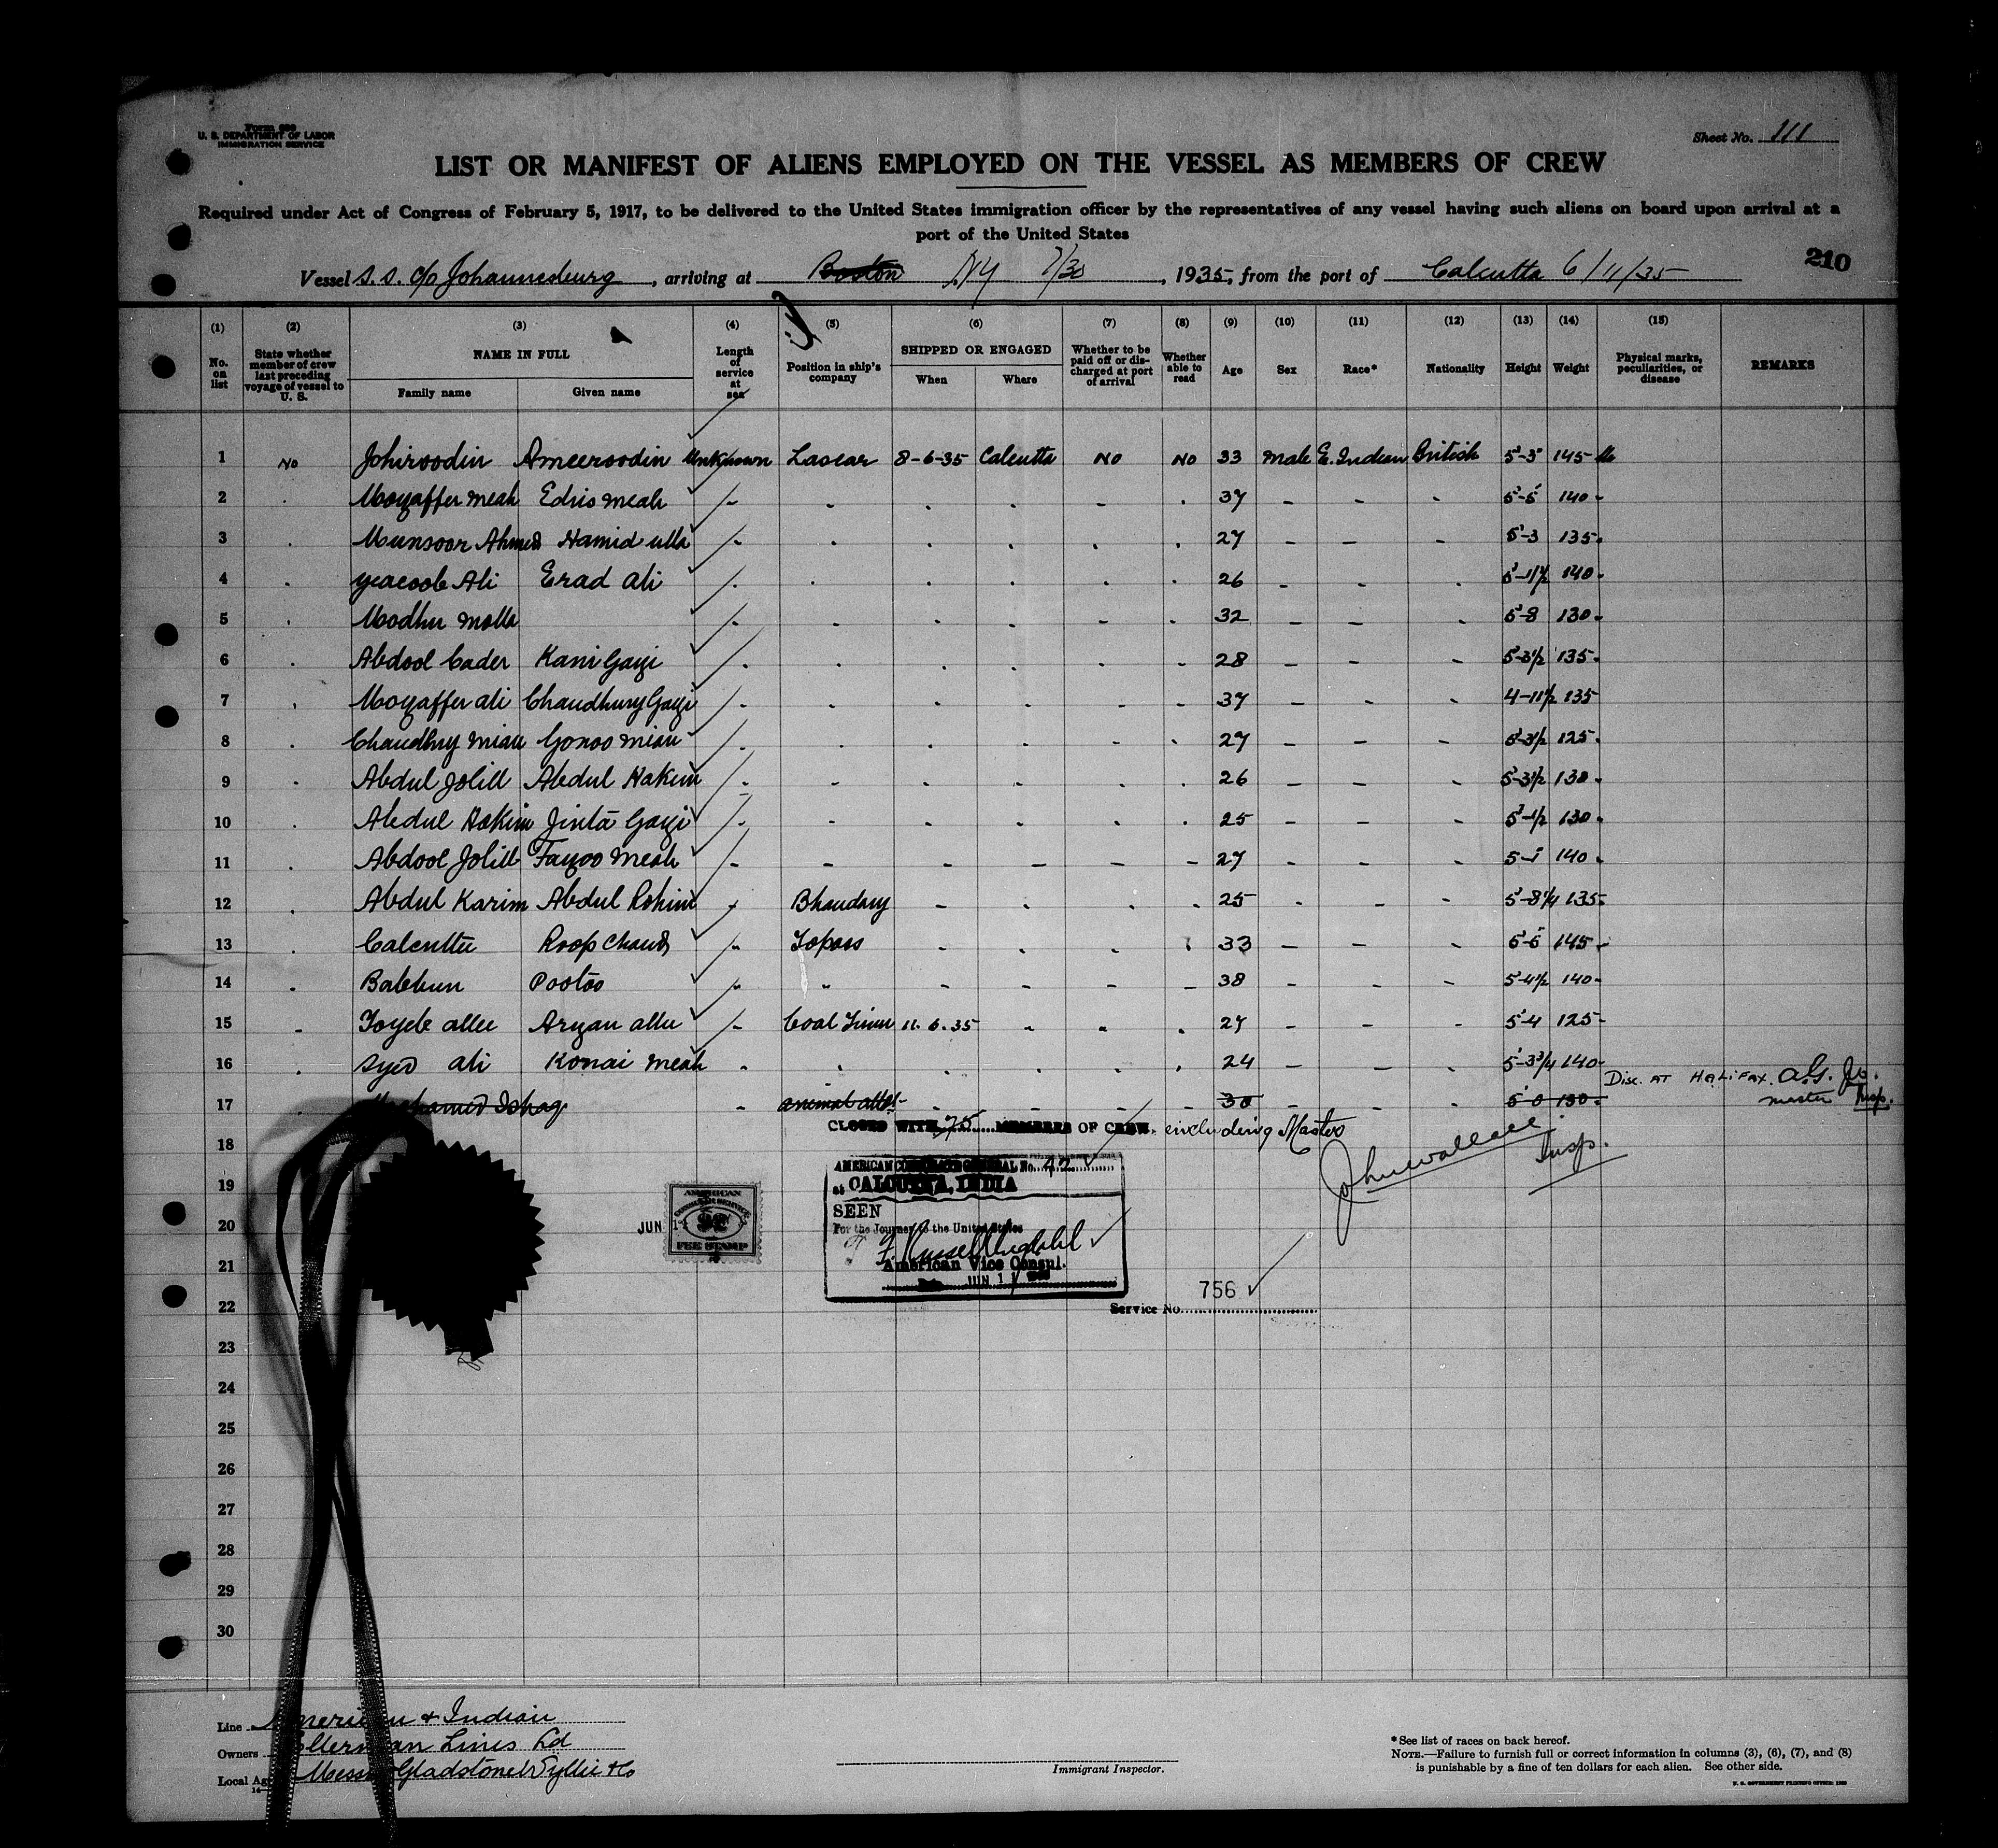 Form 689
U. S. DEPARTMENT OF LABOR
IMMIGRATION SERVICE
Sheet No. 111
LIST OR MANIFEST OF ALIENS EMPLOYED ON THE VESSEL AS MEMBERS OF CREW
Required under Act of Congress of February 5, 1917, to be delivered to the United States immigration officer by the representatives of any vessel having such aliens on board upon arrival at a
port of the United States
210
Vessel S.S. C/o Johannesburg, arriving at Boston NY 7/30, 1935, from the port of Calcutta 6/11/35
(1) (2) (3) (4) (5) (6) (7) (8) (9) (10) (11) (12) (13) (14) (15)
No. on list
State whether member of crew last preceding voyage of vessel to U. S.
NAME IN FULL
Family name Given name
Length of service at sea
Position in ship's company
SHIPPED OR ENGAGED
When Where
Whether to be paid off or discharged at port of arrival
Whether able to read
Age Sex Race* Nationality Height Weight
Physical marks, peculiarities, or disease
REMARKS
1 No Johiroodin Ameeroodin Unknown Lascar 8-6-35 Calcutta No No 33 Male E. Indian British 5-3 145
2 Mozaffer meah Edris meah 37 5-5 140
3 Munsoor Ahmed Hamid ulla 27 5-3 135
4 Yeacoob Ali Erad Ali 26 140
5 Modhu molla 32 5-8 130
6 Abdool Cader Kani Gazi 28 5-3½ 135
7 Mozaffer ali Chaudhury Gazi 37 4-11½ 135
8 Chaudhry mian Gonoo mian 27 5-3½ 125
9 Abdul Jolill Abdul Hakim 26 5-3½ 130
10 Abdul Hokim Jinta Gazi 25 5-1½ 130
11 Abdool Jolill Fazoo meah 27 5-1 140
12 Abdul Karim Abdul Rohim Bhandary 25 5-8¼ 135
13 Calcuttu Roop Chand Topass 33 5-5 145
14 Babbun Pootoo " 38 5-4½ 140
15 Toyeb allee Arzan allee Coal Trimr 11.6.35 27 5-4 125
16 Syed ali Konai meah 24 5-3¾ 140
Disc. AT HALIFAX. A.G. Jo.
17 Mohamed Ishag animal attdt. 30 5-0 130 master Insp.
CLOSED WITH 75 MEMBERS OF CREW. including Master
18
John Wallace Insp.
AMERICAN CONSULATE GENERAL No. 42
at CALCUTTA, INDIA
19
SEEN
For the Journey to the United States
AMERICAN
FEE STAMP
JUN 11
20
American Vice Consul.
Date JUN 11
21
756
22
Service No.
23
24
25
26
27
28
29
30
Line American & Indian
Owners Ellerman Lines Ld
Local Ag Messrs Gladstone Wyllie & Co
Immigrant Inspector.
*See list of races on back hereof.
NOTE.—Failure to furnish full or correct information in columns (3), (6), (7), and (8)
is punishable by a fine of ten dollars for each alien. See other side.
U. S. GOVERNMENT PRINTING OFFICE